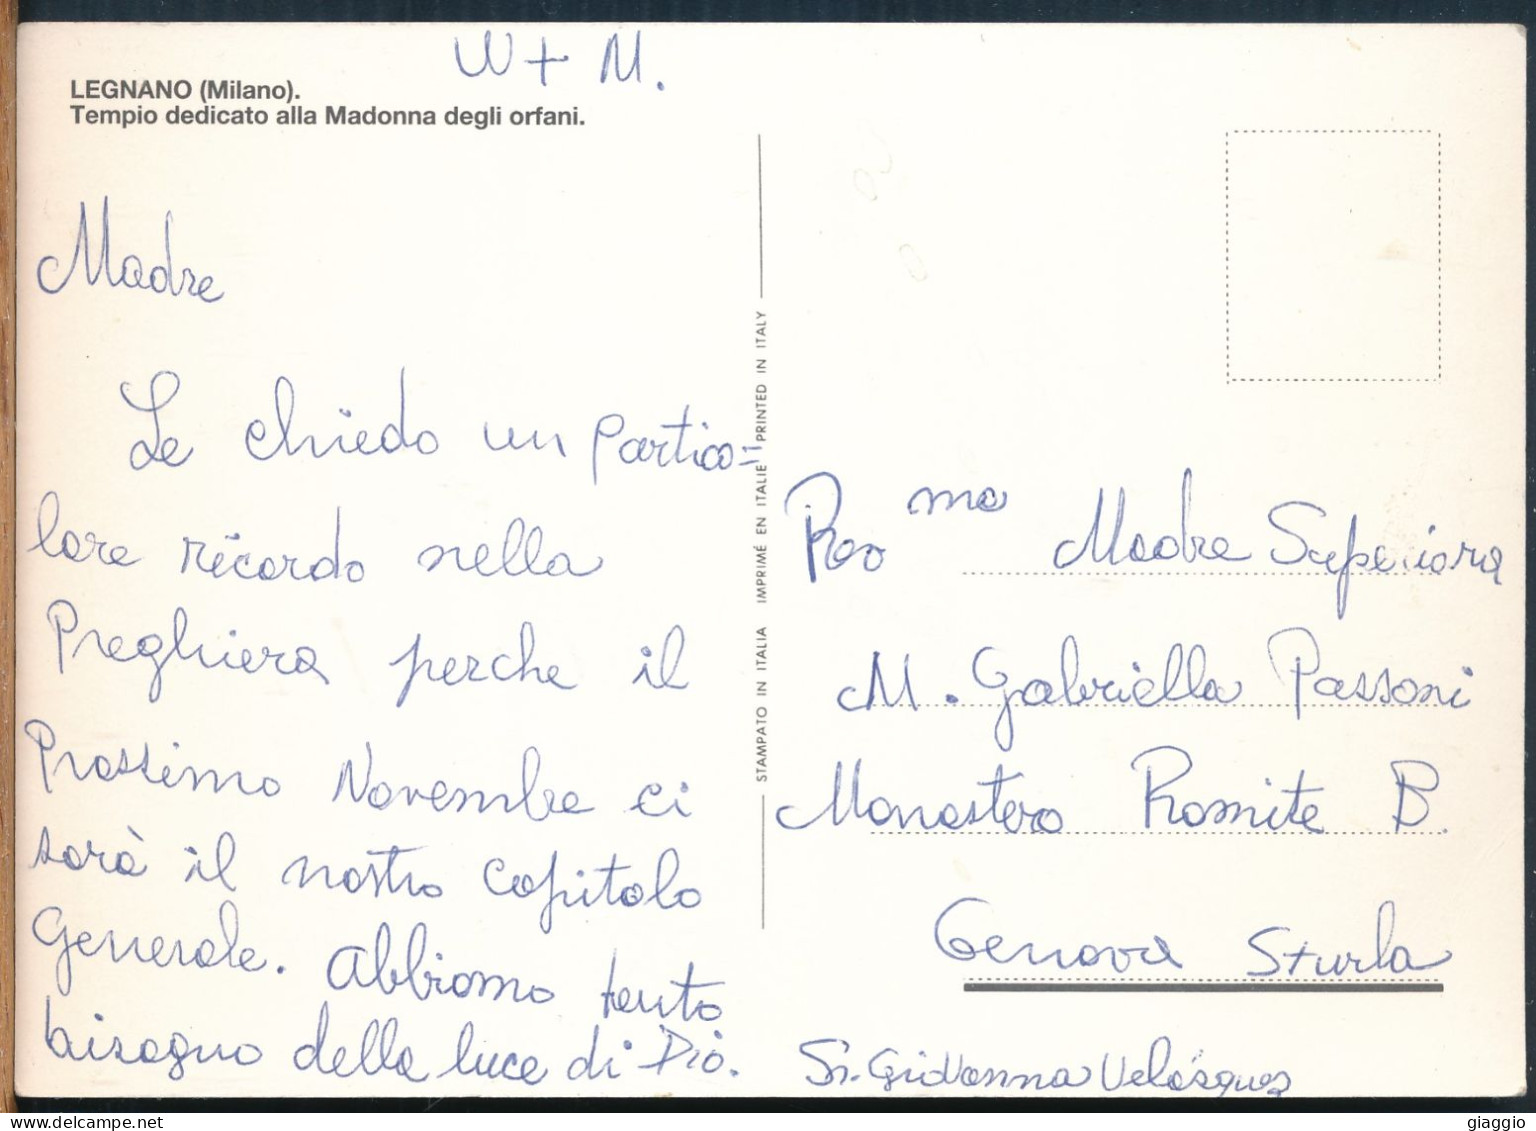 W + M.
LEGNANO (Milano).
Tempio dedicato alla Madonna degli orfani.
Madre
Le chiedo un partico=
lare ricordo nella
Preghiera perche il
Prossimo Novembre ci
sarà il nostro capitolo
Generale. Abbiamo tanto
bisogno della luce di Dio.
STAMPATO IN ITALIA IMPRIMÉ EN ITALIE PRINTED IN ITALY
ma Madre Superiora
M. Gabriella Passoni
Monastero Romite B.
Genova Sturla
Sr. Giovanna Velásquez
giaggio